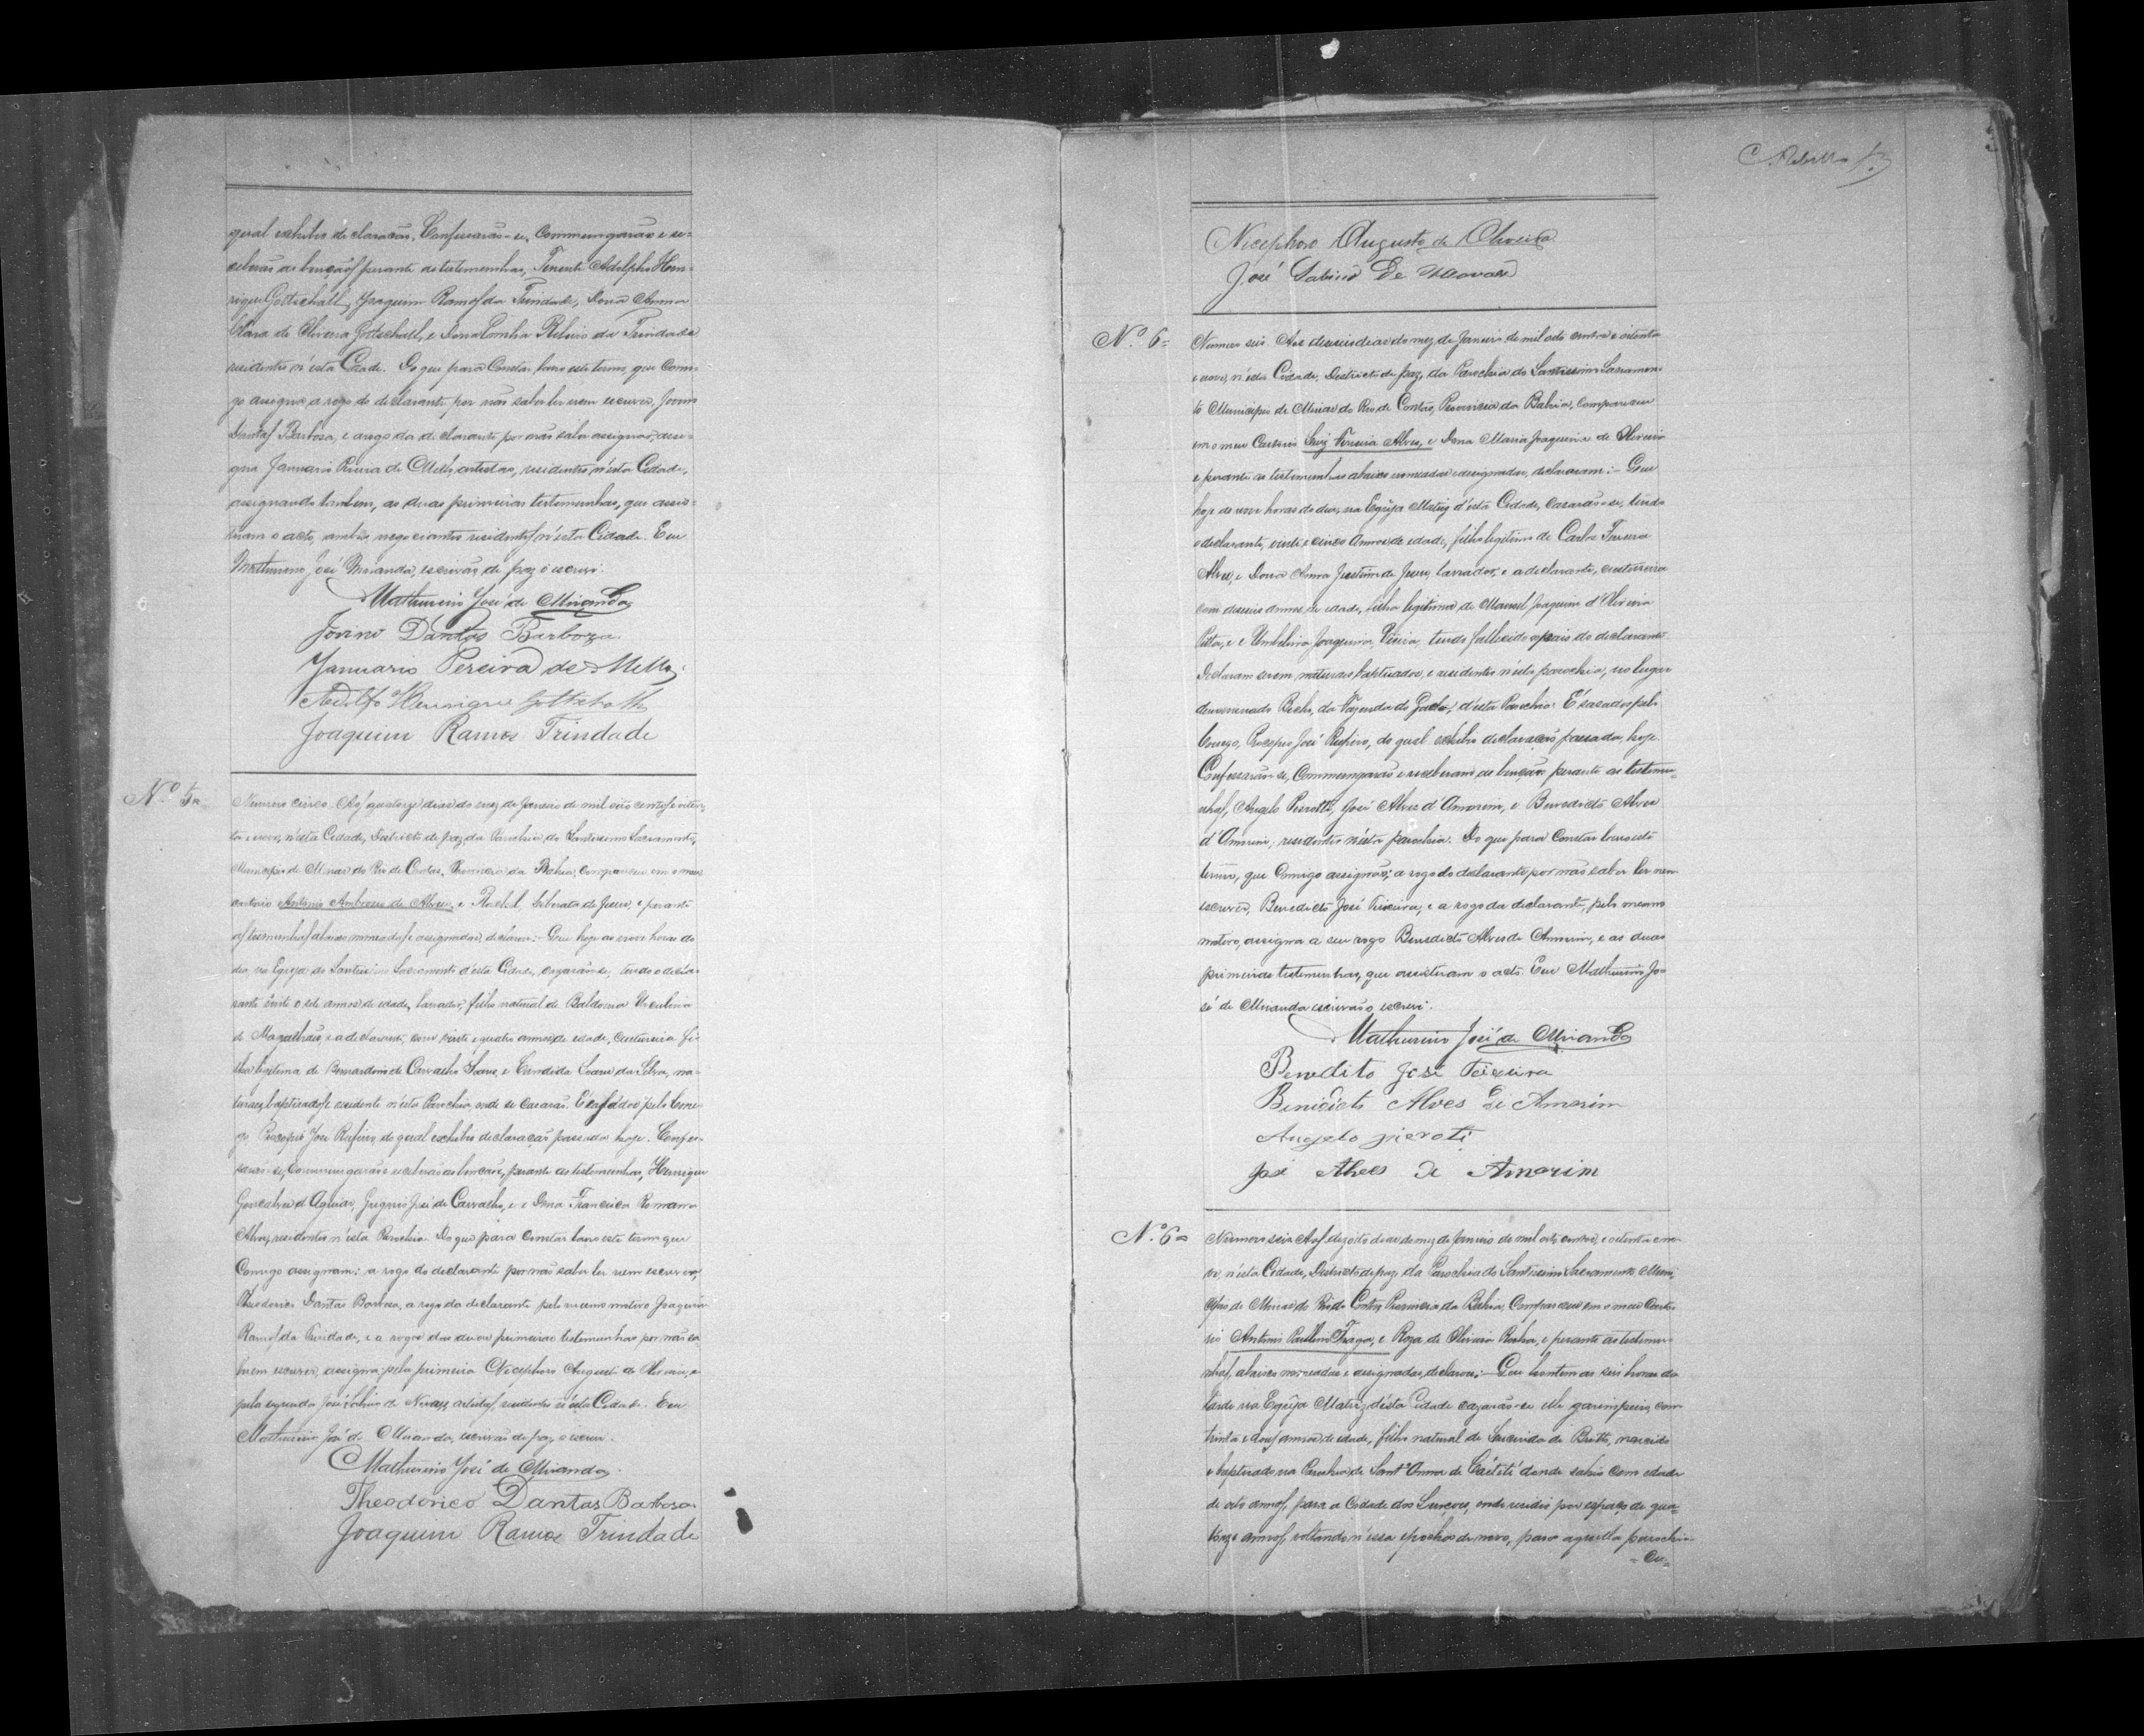 qual exhibio declaração. Confessarão-se, Commungarão e re-
ceberão as bençãos perante as testemunhas, Tenente Adolpho Hen-
rique Gottschall, Joaquim Ramos da Trindade, Dona Anna
Clara de Oliveira Gottschall, e Dona Ribeiro da Trindade
residentes n'esta Cidade. Do que para Constar lavro este termo, que Comi-
go assigna, a rogo do declarante por não saber ler nem escrever, Jovino
Dantas Barbosa, e arogo da declarante por não saber assignar, assi-
gna Januario Pereira de Mello, artistas, residentes n'esta Cidade,
assignando tambem, as duas primeiras testemunhas, que assis-
tiram o acto, ambos negociantes residentes n'esta Cidade. Eu
Mathurino José Miranda, escrivão de paz o escrevi.
Mathurino José de Miranda
Jovino Dantas Barboza
Januario Pereira de Mello
Adolfo Henrique Gottschall
Joaquim Ramos Trindade
Nº 5=
Numero cinco. Aos quatorze dias do mez de Janeiro de mil oito centos e oiten-
ta e nove, n'esta Cidade, Districto de paz, da Parochia do Santissimo Sacramento,
Municipio de Minas do Rio de Contas, Provincia da Bahia, compareceu em o meu
cartorio Antonio Ambrosio de Abreu, e Rachel Liberata de Jesus, e perante
as testemunhas abaixo nomeadas e assignadas, declaram:- Que hoje as nove horas do
dia, na Egreja do Santissimo Sacramento d'esta Cidade, cazarão-se, tendo o decla-
rante vinte e sete annos de edade, lavrador, filho natural de Baldoina Urculina
de Magalhães, e a declarante, com vinte e quatro annos de edade, Costureira, fi-
lha legitima de Bernardino de Carvalho Soares, e Candida Soares da Silva, na-
turaes, baptizados e residentes n'esta Parochia, onde se Casarão. E casados pelo Cone-
go, Procopio José Rufino, do qual exhibio declaração passada hoje. Confes-
sarão-se, Commungarão e receberão as bençãos, perante as testemunhas, Henrique
Gonçalves d'Aguiar, Gregorio José de Carvalho, e Dona Francisca Romana
Alves, residentes n'esta Parochia. Do que para Constar lavro este termo que
Comigo assignam: a rogo do declarante por não saber ler nem escrever,
Theodorico Dantas Barbosa, a rogo da declarante pelo mesmo motivo Joaquim
Ramos da Trindade, e a rogos das duas primeiras testemunhas por não sa-
berem escrever, assigna: pela primeira Nicephoro Augusto de Oliveira, e
pela segunda José Sabino de Novaes, artistas, residentes n'esta Cidade. Eu
Mathurino José de Miranda, escrivão de paz, o escrevi.
Mathurino José de Miranda
Theodorico Dantas Barbosa
Joaquim Ramos Trindade
Nicephoro Augusto de Oliveira
José Sabino De Novaes
Nº 6=
Numero seis. Aos dezeseis dias do mez de Janeiro de mil oito centos e oitenta
e nove, n'esta Cidade, Districto de paz, da Parochia do Santissimo Sacramen-
to Municipio de Minas do Rio de Contas, Provincia da Bahia, Compareceu
em o meu Cartorio Luiz Ferreira Alves, e Dona Maria Joaquina de Oliveira
e perante as testemunhas abaixo nomeadas e assignadas, declararam:- Que
hoje as nove horas do dia, na Egreja Matriz d'esta Cidade, Casarão-se, tendo
o declarante, vinte e cinco annos de edade, filho legitimo de Carlos Ferreira
Alves, e Dona Anna Justina de Jesus, lavrador, e a declarante, costureira
com deseseis annos de edade, filha legitima de Manoel Joaquim d'Oliveira
e Umbelina Joaquina Vieira, tendo fallecido os paes do declarante.
Declaram serem, naturaes, baptizados, e residentes n'esta parochia, no lugar
denominado da Fazenda do Gado, d'esta Parochia. E casados pelo
Conego, Procopio José Rufino, do qual exhibio declaração passada, hoje.
Confessarão-se, Commungarão e receberam as bençãos perante as testemu-
nhas, Angelo Pierotti, José Alves d'Amorim, e Benedicto Alves
d'Amorim, residentes n'esta parochia. Do que para Constar lavro este
termo, que Comigo assignão: a rogo do declarante por não saber ler nem
escrever, Benedicto José Teixeira, e a rogo da declarante, pelo mesmo
motivo, assigna a seu rogo Benedicto Alves de Amorim, e as duas
primeiras testemunhas, que assistiram o acto. Eu Mathurino Jo-
sé de Miranda escrivão o escrevi.
Mathurino José de Miranda
Benedito José Teixeira
Benidicto Alves de Amorim
Angelo pieroti
José Alves de Amorim
Nº 6=
Numero seis. Aos dezoito dias do mez de Janeiro de mil oito centos, e oitenta e no-
ve, n'esta Cidade, Districto de paz, da Parochia do Santissimo Sacramento Muni-
cipio de Minas do Rio de Contas Provincia da Bahia, Compareceu em o meu Carto-
rio Antonio Paullino Fraga, e Roza de Oliveira Rocha, e perante as testemu-
nhas, abaixo nomeadas e assignadas, declarou:- Que hontem as seis horas da
tarde na Egreja Matriz d'esta Cidade cazarão-se elle garimpeiro, com
trinta e dous annos, de edade, filho natural de de Britto, nascido
e baptizado na Parochia de Sant'Anna de Caeteté donde sahio com edade
de oito annos, para a Cidade dos Lençoes, onde residio por espaço de qua-
torze annos, voltando n'essa epocha de novo, para aquella parochia
= Cu=